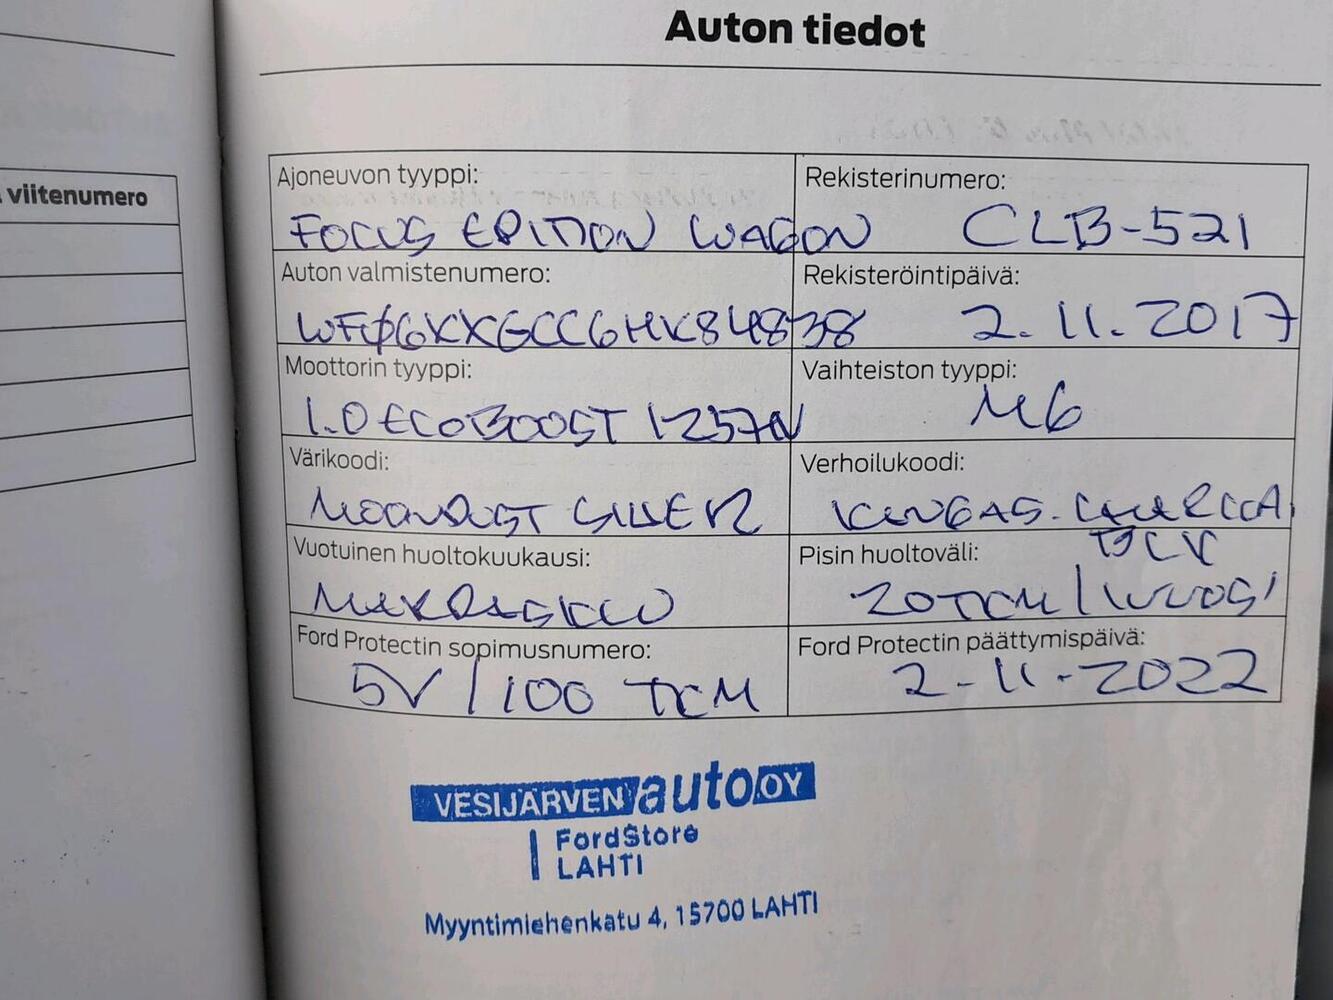 Auton tiedot
viitenumero
Ajoneuvon tyyppi:
FOCUS EDITION WAGON
Rekisterinumero:
CLB-521
Auton valmistenumero:
WF06XXGCC6HK84838
Rekisteröintipäivä:
2.11.2017
Moottorin tyyppi:
1.0 ECOBOOST 125
Vaihteiston tyyppi:
M6
Värikoodi:
MOONDUST SILVER
Verhoilukoodi:
KANGAS.
Vuotuinen huoltokuukausi:
MARRASKUU
Pisin huoltoväli:
20TKM/1VUOSI
Ford Protectin sopimusnumero:
5V/100 TKM
Ford Protectin päättymispäivä:
2-11-2022
VESIJÄRVEN auto OY
FordStore
LAHTI
Myyntimiehenkatu 4, 15700 LAHTI